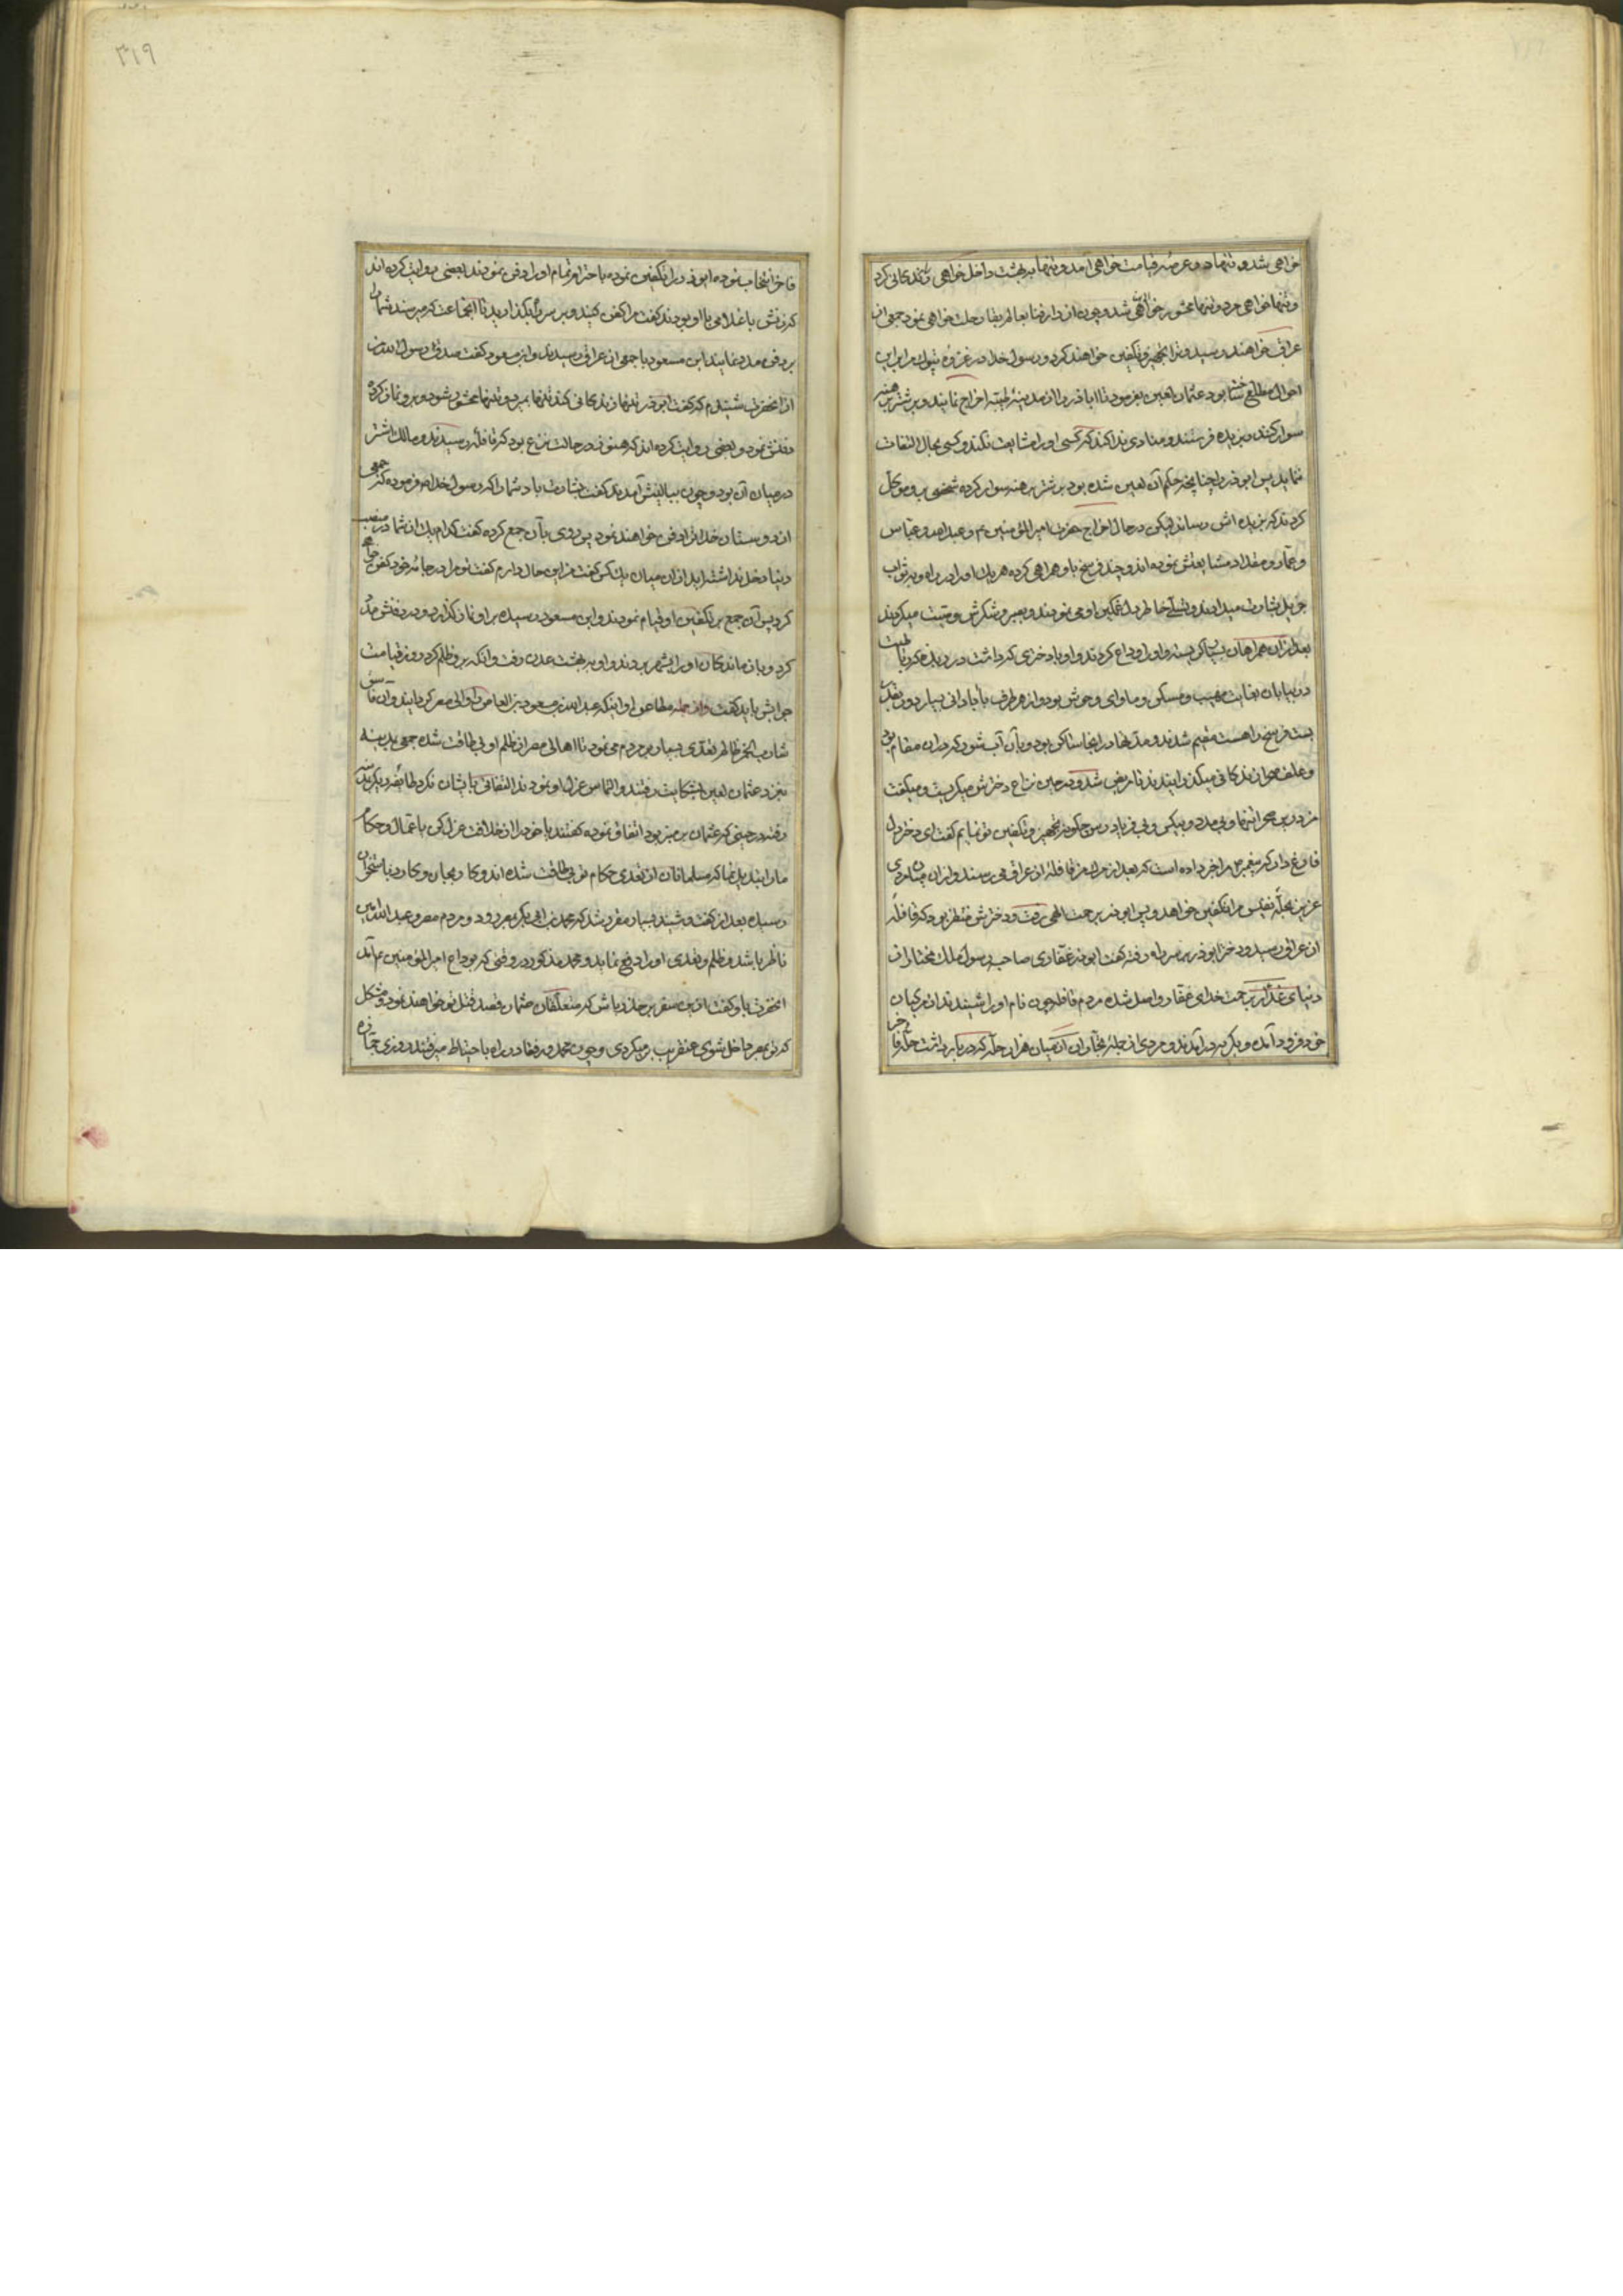 ۳۱۹
خواهی شد و تنها در عرصه قیامت خواهی آمد و تنها به بهشت داخل خواهی زندکانی کرد
و تنها خواهی مرد و تنها محشور خواهی شد و چون از دار فنا بعالم بقا رحلت خواهی نمود جمعی از
عراق خواهند رسید و ترا تجهیز و تکفین خواهند کرد و رسول خدا در غزوه تبوک مرا براین
احوال مطلع ساخته بود عثمان لعین بفرمود تا اباذر را از مدینه طیبه اخراج نمایند و بر شتر برهنه
سوار کنند و بربذه فرستند و منادی ندا کند که کسی او را مشایعت نکند و کسی بحال التفات
ننماید پس ابوذر را چنانچه حکم آن لعین شده بود بر شتر برهنه سوار کرده شخصی برو موکل
کردند که بربذه اش رساند لیکن در حال اخراج حضرت امیر المؤمنین ع و عبدالله و عباس
و عمار و مقداد مشایعتش نموده اند و چند فرسخ باو همراهی کرده هر یک او را در راه و بثواب
جزیل بشارت میدادند و تسلی خاطر غمکین او می نمودند و بصبر و شکرش وصیت میکردند
بعد از آن همراهان او را وداع کردند و او با دختری که داشت در ربذه
در بیابان بغایت مهیب و مسکن و ماوای وحوش بود و از هر طرف تا بآبادانی بسیار دور بقدر
بیست فرسخ مقیم شدند و مدتها در اینجا ساکن بود و بآن آب شور که در آن مقام بود
و علف صحرا زندکانی میکذرانیدند تا مریض شد و در حین نزاع دخترش میکریست و میکفت
من درین صحرا تنها و بی مدد و بیکس و بی فریادرس چکونه تجهیز و تکفین تو نمایم کفت ای دختر دل
فارغ دار که پیغمبر مرا خبر داده است که بعد از مرک من قافله از عراق می رسند و از آن میان مردی
عزیز بحله نفیس مرا تکفین خواهد و پس ابوذر برحمت الهی رفت و دخترش منتظر بود که قافله
از عراق رسید و دختر ابوذر بر سر راه رفته کفت ابوذر غفاری صاحب رسول ملک مختار از
دنیای غدار برحمت خدای غفار واصل شده مردم قافله چون نام او را شنیدند از مرکبان
خود فرود آمده و بکریه درآمدند و مردی از جمله تجار از میان هزار حله که در بار داشت حله فاخر
فاخر انتخاب نموده ابوذر را تکفین نموده باحترام تمام او را دفن نمودند و بعضی روایت کرده اند
که زنش با غلامی با او بودند کفت مرا کفن کنید و بر سر راه بکذارید تا آن جماعت که میرسند شما را
بر دفن مدد نمایند ابن مسعود با جمعی از عراق رسیدند و ابن مسعود کفت صدق رسول الله من
از آنحضرت شنیدم که کفت ابوذر تنها زندکانی کند تنها بمیرد و تنها محشور شود و برو نماز کرده
دفنش نمود و بعضی روایت کرده اند که هنوز در حالت نزع بود که قافله رسیدند و مالک اشتر
در میان آن بود و چون ببالینش آمدند کفت بشارت باد شما را که رسول خدا ص فرموده که جمعی
از دوستان خدا ترا دفن خواهند نمود پس روی بآن جمع کرده کفت کدام یک از شما در منصب
دنیا دخل نداشته اید از آن میان یک کس کفت من این حال دارم کفت تو مرا در جامه خود کفن خواهی
کرد پس آن جمع بر تکفین او قیام نمودند و ابن مسعود رسیده بر او نماز کذارد و در دفنش مدد
کرد و بازماندکان او را بشهر بردند و او به بهشت عدن رفت و آنکه برو ظلم کرد روز قیامت
جوابش باید کفت و از جمله مطاعن او اینکه عبدالله بن سعود بن العاص را والی مصر کردانید و آن فاسق
شارب الخمر ظالم تعدی بسیار بر مردم می نمود تا اهالی مصر از ظلم او بی طاقت شده جمعی بمدینه
نیز نزد عثمان لعین بشکایت رفتند و التماس عزل او نمودند التفاتی بایشان نکرد طایفه دیکر بمدینه
رفته در حینی که عثمان بر منبر بود اتفاق نموده کفتند یا خود را از خلافت عزل کن یا عمال و حکام
ما را تبدیل نما که مسلمانان از تعدی حکام تو بی طاقت شده اند و کار بجان و کارد باستخوان
رسیده بعد از کفت و شنید بسیار مقرر شد که محمد بن ابی بکر بمصر رود و مردم مصر و عبدالله امین
ناظر باشد و ظلم و تعدی او را دفع نماید و محمد مذکور در وقتی که بوداع امیر المؤمنین ع آمد
آنحضرت باو کفت ازین سفر بر حذر باش که متعلقان عثمان قصد قتل تو خواهند نمود و مشکل
که تو بمصر داخل شوی عنقریب برمیکردی و چون محمد و رفقا در راه باحتیاط میرفتند روزی جمازه